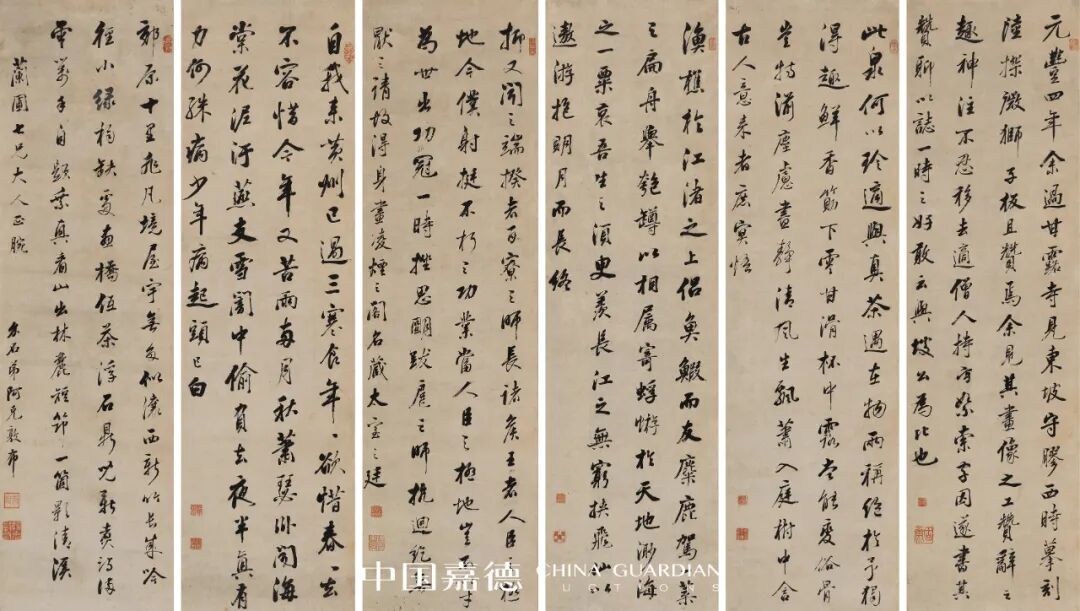 元豐四年余過甘露寺見東坡守膠西時摹刻
陸探微獅子板且贊焉余見其畫像之工贊辭之
趣神注不忍移去適僧人持紙索字因遂書其
贊聊以誌一時之好敢云與坡公為比也
此泉何以珍適與真茶遇在物兩稱絕於予獨
得趣鮮香箭下雲甘滑杯中露當能變俗骨
豈特湔塵慮晝靜清風生飄蕭入庭樹中含
古人意來者庶冥悟
漁樵於江渚之上侶魚鰕而友麋鹿駕葉
之扁舟舉匏罇以相屬寄蜉蝣於天地渺海
之一粟哀吾生之須臾羨長江之無窮挾飛仙以
遨游抱明月而長終
抑又聞之端揆者百寮之師長諸侯王者人臣之極
地今僕射挺不朽之功業當人臣之極地豈不以才
為世出功冠一時挫思明跋扈之師抗迴紇無
厭之請故得身畫凌煙之閣名藏太室之廷
自我來黃州已過三寒食年〻欲惜春〻去
不容惜今年又苦雨兩月秋蕭瑟卧聞海
棠花泥汙燕支雪闇中偷負去夜半真有
力何殊病少年病起頭已白
郊原十里非凡境屋宇無多似瀼西新竹長成吟
徑小綠楊缺處畫橋低茶浮石鼎兒新煑詩滿
雲箋手自題真看山出林麓短筇一箇影清溪
蘭圃七兄大人正腕
石弟阿克敦布
中国嘉德 CHINA GUARDIAN AUCTIONS